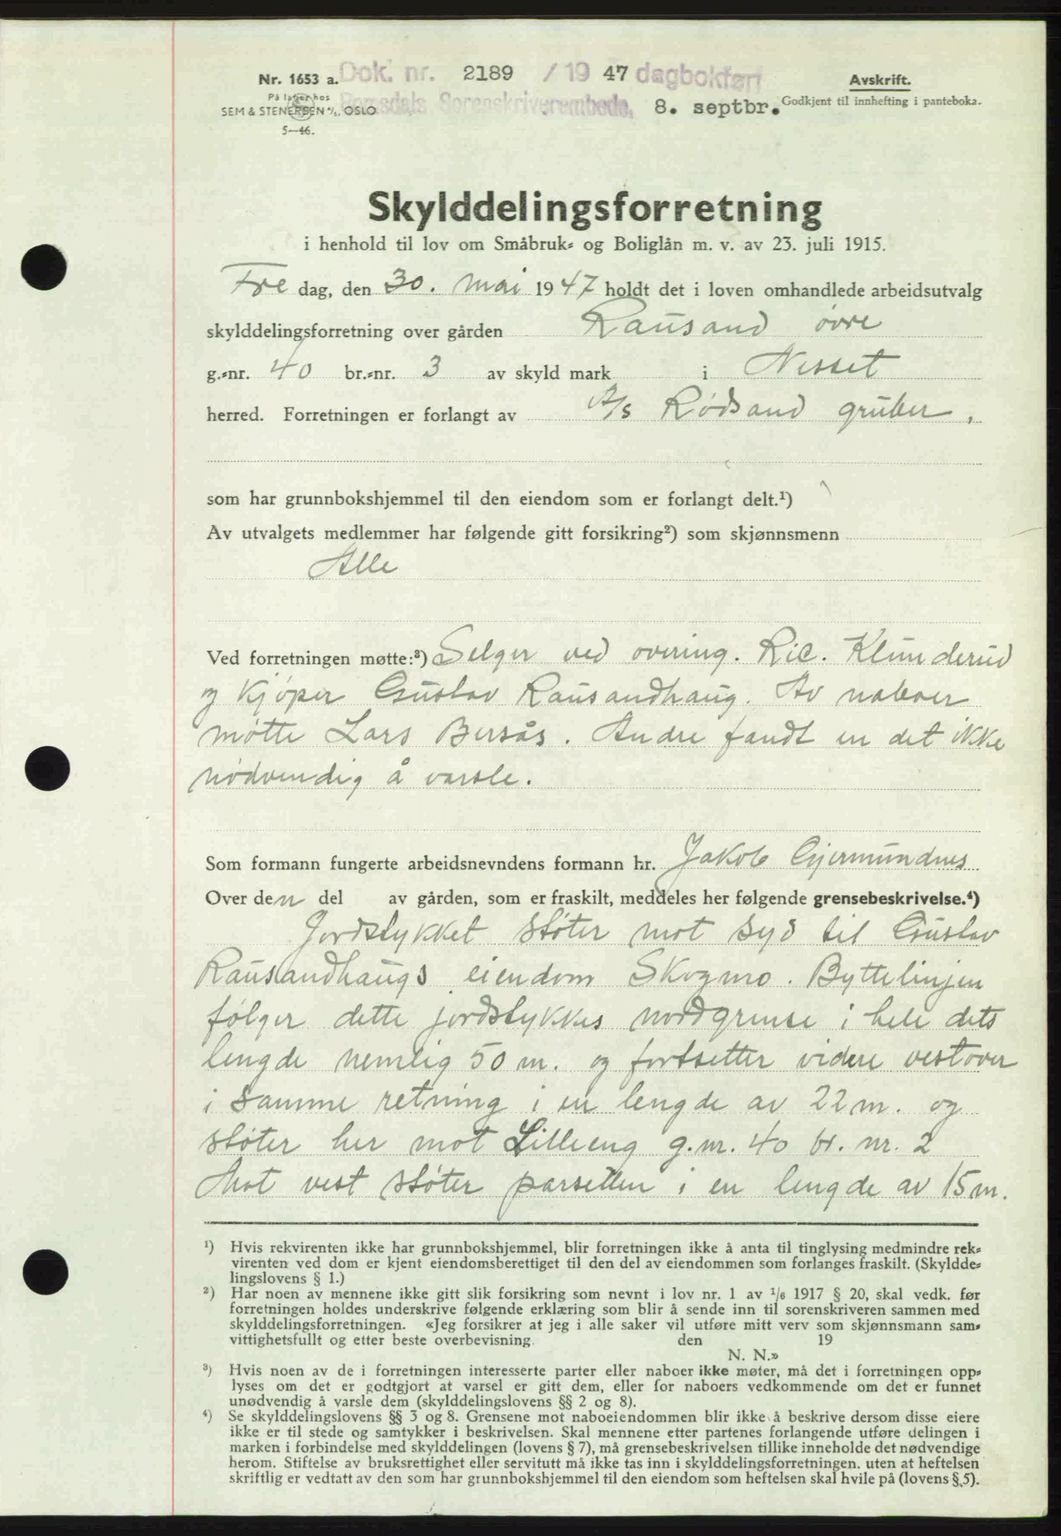 Nr. 1653 a. Dok. nr. 2189 / 19 47 dagbokført
Avskrift.
På lager hos
SEM & STENERSEN A/S, OSLO
5—46.
Romsdals Sorenskriverembede, 8. septbr.
Godkjent til innhefting i panteboka.
Skylddelingsforretning
i henhold til lov om Småbruk- og Boliglån m. v. av 23. juli 1915.
Fre dag, den 30. mai 1947 holdt det i loven omhandlede arbeidsutvalg
skylddelingsforretning over gården Rausand øvre
g.-nr. 40 br.-nr. 3 av skyld mark i Nesset
herred. Forretningen er forlangt av A/s Rødsand gruber.
som har grunnbokshjemmel til den eiendom som er forlangt delt.¹)
Av utvalgets medlemmer har følgende gitt forsikring²) som skjønnsmenn
Alle
Ved forretningen møtte:³) Selger ved overing. Ric. Klunderud
og kjøper Gustav Rausandhaug. Av naboer
møtte Lars Bersås. Andre fandt en det ikke
nødvendig å varsle.
Som formann fungerte arbeidsnevndens formann hr. Jakob Gjermundnes
Over den del av gården, som er fraskilt, meddeles her følgende grensebeskrivelse.⁴)
Jordstykket støter mot syd til Gustav
Rausandhaugs eiendom Skogmo. Byttelinjen
følger dette jordstykkes nordgrense i hele dets
lengde nemlig 50 m. og fortsetter videre vestover
i samme retning i en lengde av 22 m. og
støter her mot Lilleeng g.nr. 40 br. nr. 2
Mot vest støter parsellen i en lengde av 15 m.
¹) Hvis rekvirenten ikke har grunnbokshjemmel, blir forretningen ikke å anta til tinglysing medmindre rek-
virenten ved dom er kjent eiendomsberettiget til den del av eiendommen som forlanges fraskilt. (Skyldde-
lingslovens § 1.)
²) Har noen av mennene ikke gitt slik forsikring som nevnt i lov nr. 1 av 1/6 1917 § 20, skal vedk. før
forretningen holdes underskrive følgende erklæring som blir å sende inn til sorenskriveren sammen med
skylddelingsforretningen. «Jeg forsikrer at jeg i alle saker vil utføre mitt verv som skjønnsmann sam-
vittighetsfullt og etter beste overbevisning. den 19
N. N.»
³) Hvis noen av de i forretningen interesserte parter eller naboer ikke møter, må det i forretningen opp-
lyses om det er godtgjort at varsel er gitt dem, eller for naboers vedkommende om det er funnet
unødvendig å varsle dem (skylddelingslovens §§ 2 og 8).
⁴) Se skylddelingslovens §§ 3 og 8. Grensene mot naboeiendommen blir ikke å beskrive dersom disse eiere
ikke er til stede og samtykker i beskrivelsen. Skal mennene etter partenes forlangende utføre delingen i
marken i forbindelse med skylddelingen (lovens § 7), må grensebeskrivelsen tillike inneholde det nødvendige
herom. Stiftelse av bruksrettighet eller servitutt må ikke tas inn i skylddelingsforretningen, uten at heftelsen
skriftlig er vedtatt av den som har grunnbokshjemmel til den eiendom som heftelsen skal hvile på (lovens § 5).